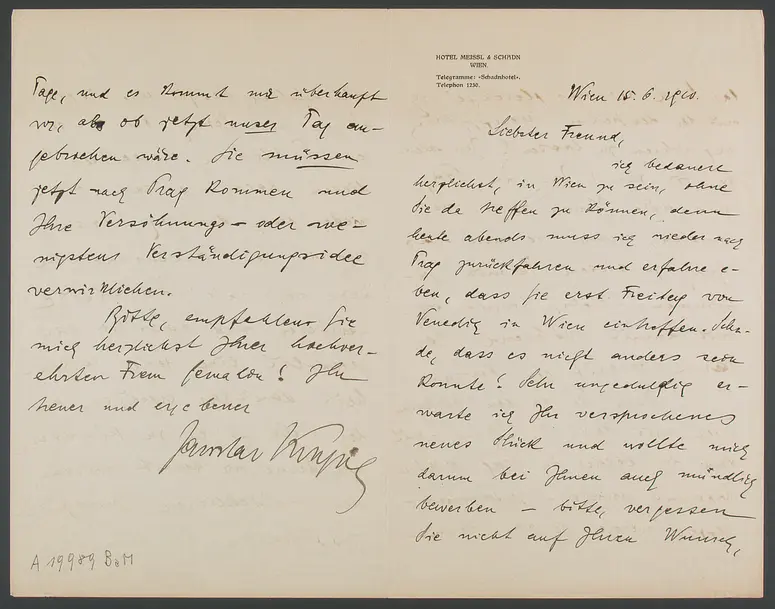 HOTEL MEISSL & SCHADN
WIEN.
Telegramme: «Schadnhotel».
Telephon 1250.
Wien 15. 6.
Liebster Freund,
ich bedauere
herzlichst, in Wien zu sein, ohne
Sie da treffen zu können, denn
heute abends muss ich wieder nach
Prag zurückfahren und erfahre e-
ben, dass Sie erst Freitag von
Venedig in Wien eintreffen. Scha-
de, dass es nicht anders sein
konnte! Sehr ungeduldig er-
warte ich Ihr versprochenes
neues Stück und wollte mich
darum bei Ihnen auch mündlich
bewerben – bitte, vergessen
Sie nicht auf Ihren Wunsch,
Tage, und es kommt mir überhaupt
vor, als ob jetzt unser Tag an-
gebrochen wäre. Sie müssen
jetzt nach Prag kommen und
Ihre Versöhnungs- oder we-
nigstens Verständigungsidee
verwirklichen.
Bitte, empfehlens Sie
mich herzlichst Ihrer hochver-
ehrten Frau Gemalin! Ihr
treuer und ergebener
Jaroslav Kvapil
A 19989 BaM